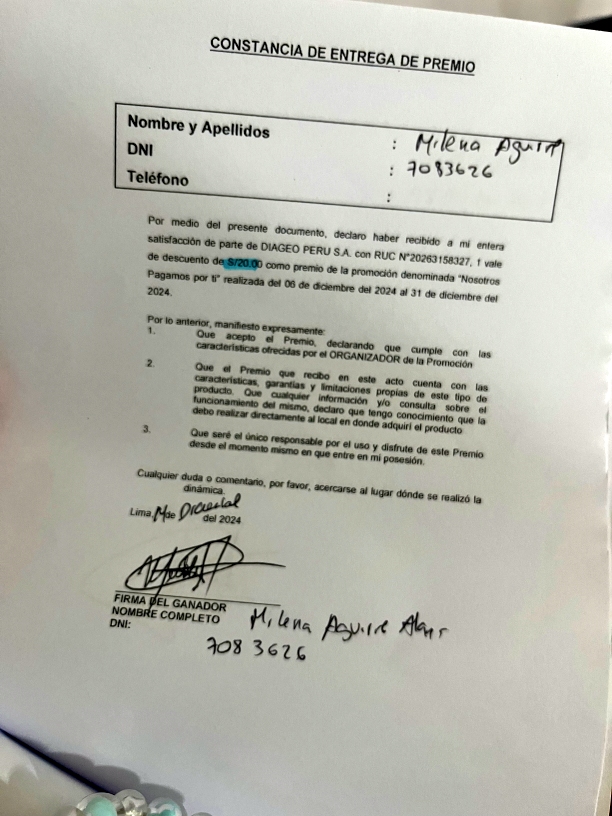 CONSTANCIA DE ENTREGA DE PREMIO
Nombre y Apellidos : Milena Aguirr
DNI : 7083626
Teléfono :
Por medio del presente documento, declaro haber recibido a mi entera
satisfacción de parte de DIAGEO PERU S.A. con RUC N°20263158327, 1 vale
de descuento de S/20.00 como premio de la promoción denominada "Nosotros
Pagamos por ti" realizada del 06 de diciembre del 2024 al 31 de diciembre del
2024.
Por lo anterior, manifiesto expresamente:
1. Que acepto el Premio, declarando que cumple con las
características ofrecidas por el ORGANIZADOR de la Promoción
2. Que el Premio que recibo en este acto cuenta con las
características, garantías y limitaciones propias de este tipo de
producto. Que cualquier información y/o consulta sobre el
funcionamiento del mismo, declaro que tengo conocimiento que la
debo realizar directamente al local en donde adquirí el producto
3. Que seré el único responsable por el uso y disfrute de este Premio
desde el momento mismo en que entre en mi posesión.
Cualquier duda o comentario, por favor, acercarse al lugar dónde se realizó la
dinámica.
Lima, de del 2024
FIRMA DEL GANADOR
NOMBRE COMPLETO Milena Aguirre
DNI: 7083626